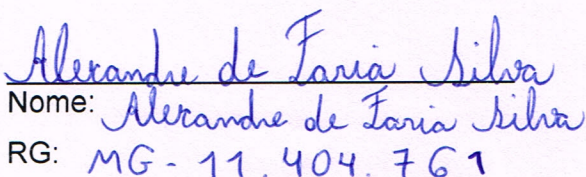 Alexandre de Faria Silva
Nome: Alexandre de Faria Silva
RG: MG - 11.404.761